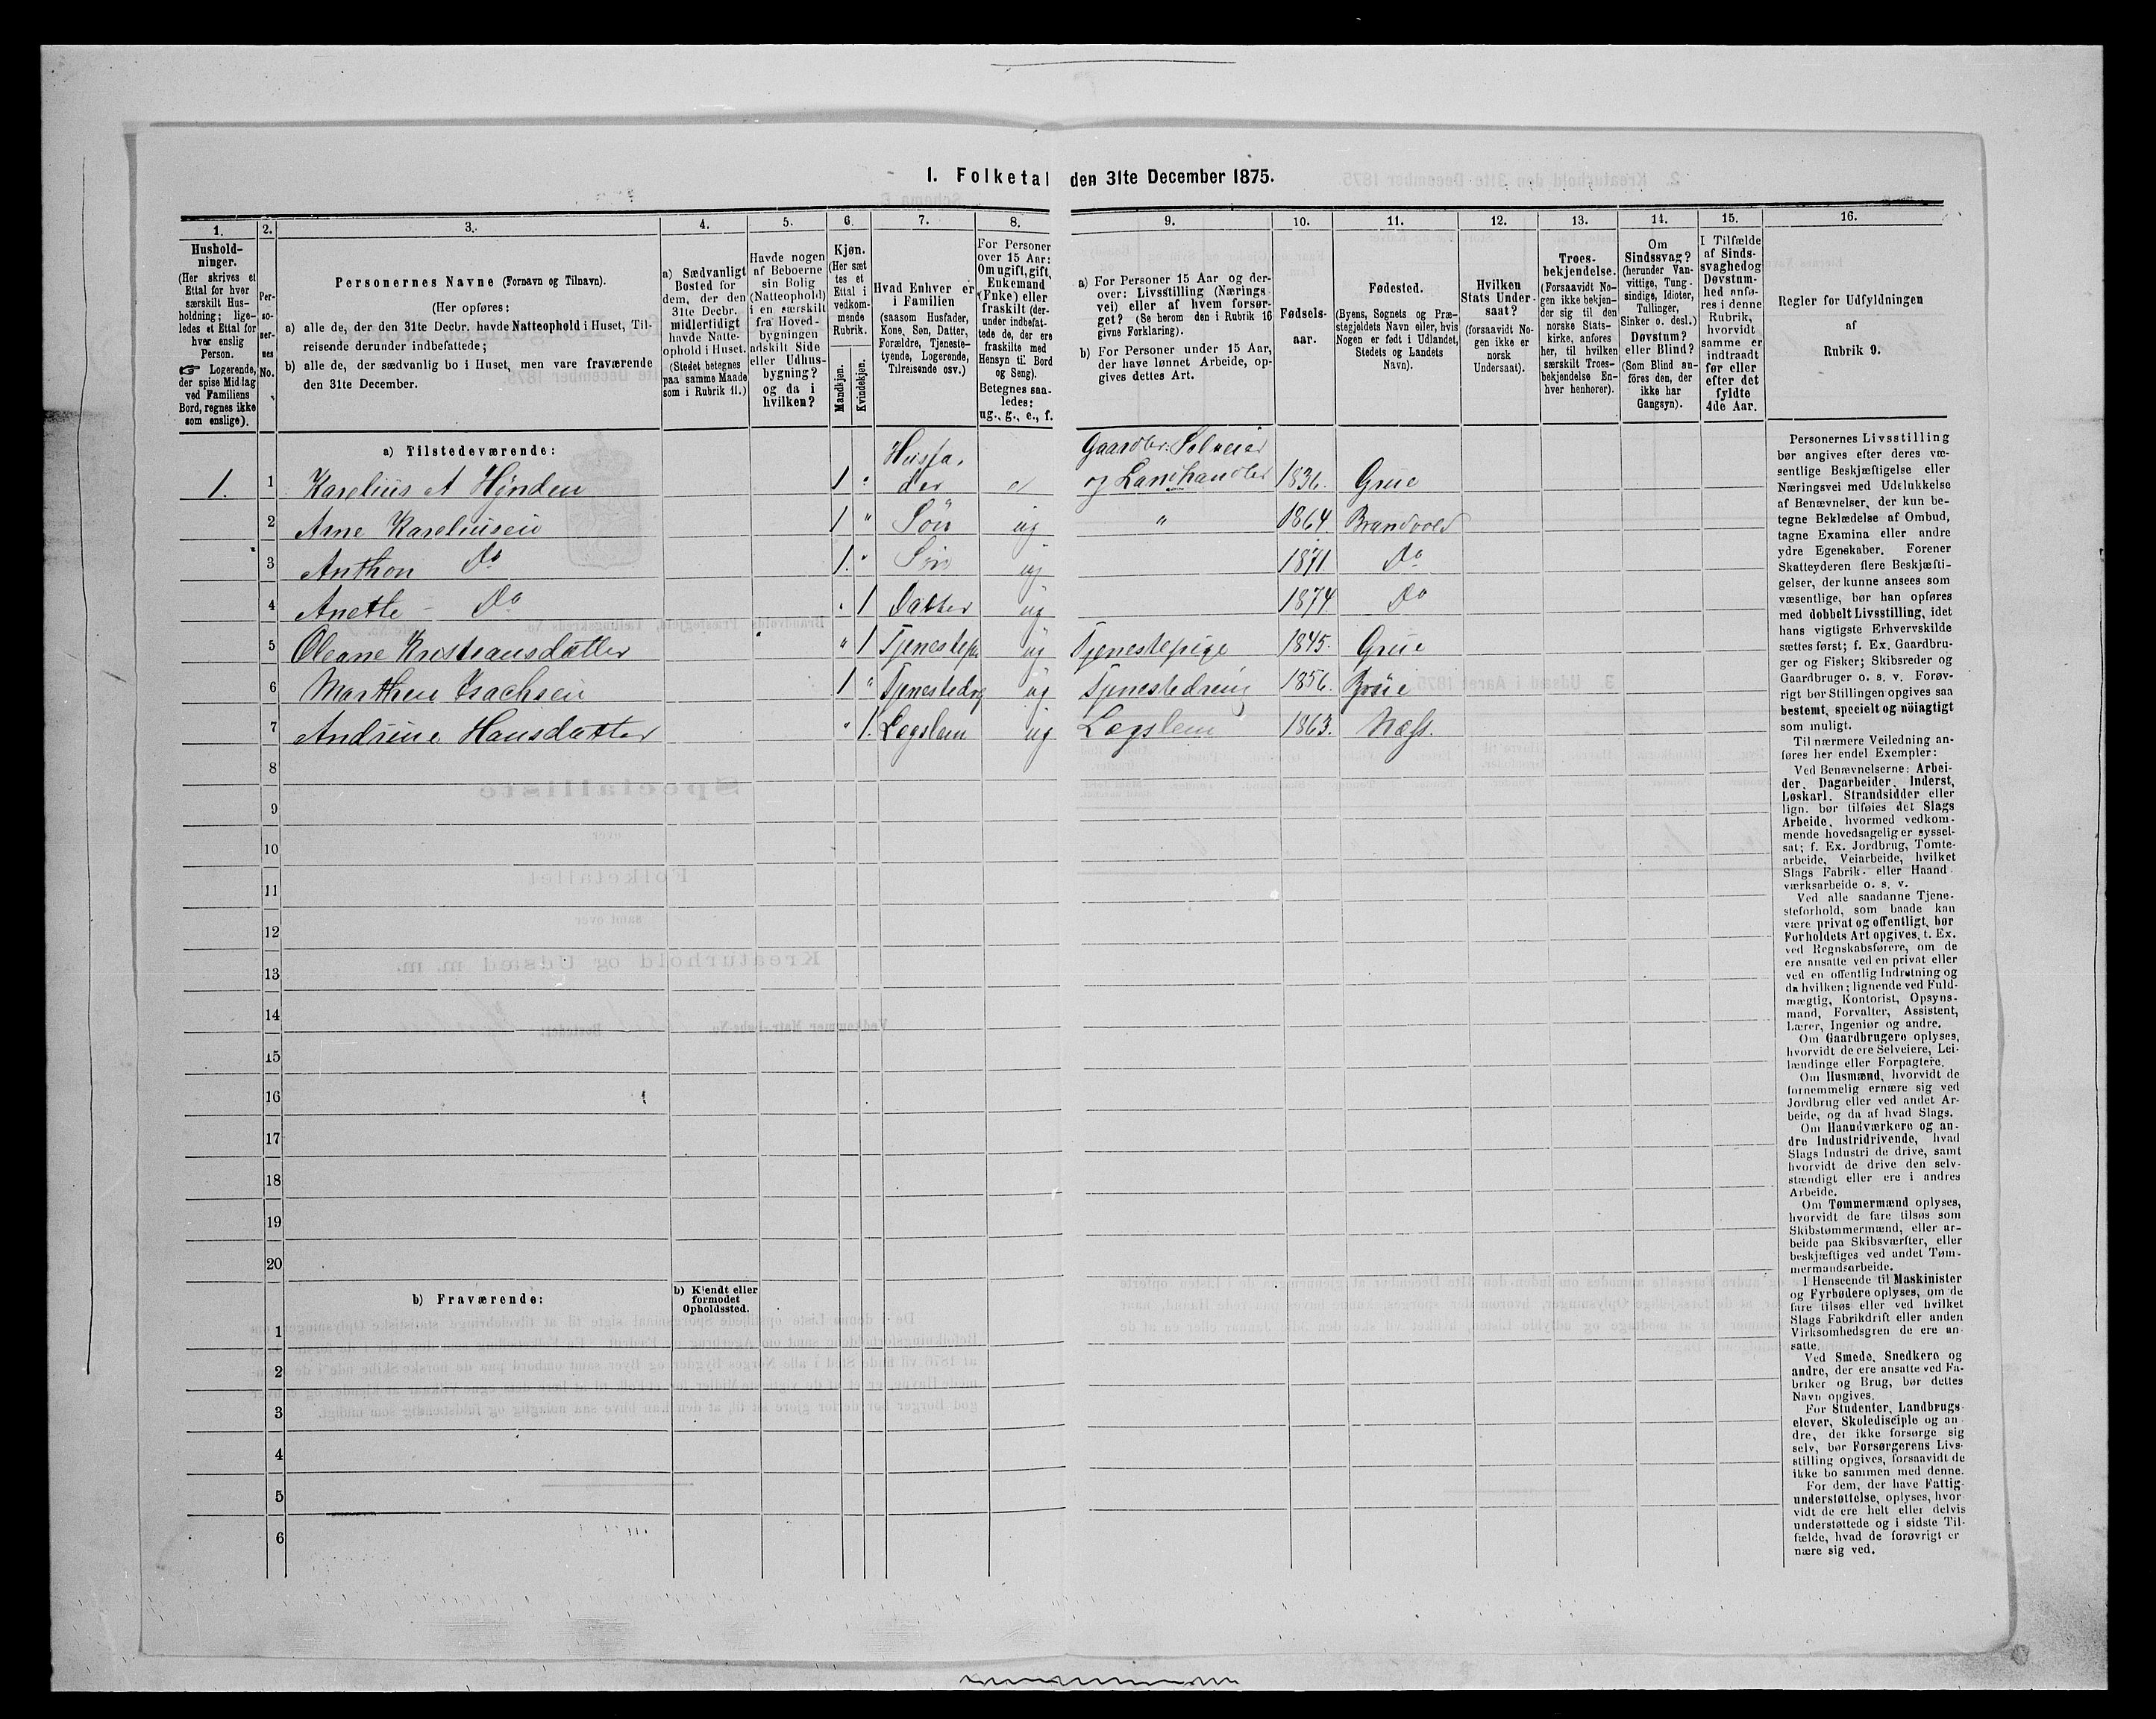 1. Folketal den 31te December 1875.
1. 2. 3. 4. 5. 6. 7. 8. 9. 10. 11. 12. 13. 14. 15. 16.
Hushold-
ninger.
(Her skrives et
Ettal for hver
særskilt Hus-
holdning; lige-
ledes et Ettal for
hver enslig
Person.
☞ Logerende,
der spise Middag
ved Familiens
Bord, regnes ikke
som enslige).
Per-
so-
ner-
nes
No.
Personernes Navne (Fornavn og Tilnavn).
(Her opføres:
a) alle de, der den 31te Decbr. havde Natteophold i Huset, Til-
reisende derunder indbefattede;
b) alle de, der sædvanlig bo i Huset, men vare fraværende
den 31te December.
a) Sædvanligt
Bosted for
dem, der den
31te Decbr.
midlertidigt
havde Natte-
ophold i Huset.
(Stedet betegnes
paa samme Maade
som i Rubrik 11.)
Havde nogen
af Beboerne
sin Bolig
(Natteophold)
i en særskilt
fra Hoved-
bygningen
adskilt Side
eller Udhus-
bygning?
og da i
hvilken?
Kjøn.
(Her sæt
tes et
Ettal i
vedkom-
mende
Rubrik.
Mandkjøn.
Kvindekjøn.
Hvad Enhver er
i Familien
(saasom Husfader,
Kone, Søn, Datter,
Forældre, Tjeneste-
tyende, Logerende,
Tilreisende osv.)
For Personer
over 15 Aar:
Om ugift, gift,
Enkemand
(Enke) eller
fraskilt (der-
under indbefat-
tede de, der ere
fraskilte med
Hensyn til Bord
og Seng).
Betegnes saa-
ledes:
ug., g., e., f.
a) For Personer 15 Aar og der-
over: Livsstilling (Nærings-
vei) eller af hvem forsør-
get? (Se herom den i Rubrik 16
givne Forklaring).
b) For Personer under 15 Aar,
der have lønnet Arbeide, op-
gives dettes Art.
Fødsels-
aar.
Fødested.
(Byens, Sognets og Præ-
stegjeldets Navn eller, hvis
Nogen er født i Udlandet,
Stedets og Landets
Navn).
Hvilken
Stats Under-
saat?
(forsaavidt No-
gen ikke er
norsk
Undersaat).
Troes-
bekjendelse.
(Forsaavidt No-
gen ikke bekjen-
der sig til den
norske Stats-
kirke, anføres
her, til hvilken
særskilt Troes-
bekjendelse En-
hver henhører).
Om
Sindssvag?
(herunder Van-
vittige, Tung-
sindige, Idioter,
Tullinger,
Sinker o. desl.)
Døvstum?
eller Blind?
(Som Blind an-
föres den, der
ikke har
Gangsyn).
I Tilfælde
af Sinds-
svaghed og
Døvstum-
hed anfø-
res i denne
Rubrik,
hvorvidt
samme er
indtraadt
før eller
efter det
fyldte
4de Aar.
Regler for Udfyldningen
af
Rubrik 9.
a) Tilstedeværende:
1. 1 Karelius A Hynden 1 " Husfa. der e Gaardbr: Selveier og Landhandler 1836. Grue
2 Arne Kareliusen 1 " Sön ug " 1864 Brandvold
3 Anthon Do 1. " Sön ug 1871 Do
4 Anette – Do " 1 Datter ug 1874 Do
5 Oleane Kristiansdatter " 1 Tjenestepi. ug Tjenestepige 1845. Grue
6 Marthin Isachsen 1 " Tjenestedrg ug Tjenestedreng 1856.
7 Andrine Hansdatter " 1. Legslem ug Legslem 1863. Næss.
8
9
10
11
12
13
14
15
16
17
18
19
20
b) Fraværende:
b) Kjendt eller
formodet
Opholdssted.
1
2
3
4
5
6
Personernes Livsstilling
bør angives efter deres væ-
sentlige Beskjæftigelse eller
Næringsvei med Udelukkelse
af Benævnelser, der kun be-
tegne Beklædelse af Ombud,
tagne Examina eller andre
ydre Egenskaber. Forener
Skatteyderen flere Beskjæfti-
gelser, der kunne ansees som
væsentlige, bør han opføres
med dobbelt Livsstilling, idet
hans vigtigste Erhvervskilde
sættes først; f. Ex. Gaardbru-
ger og Fisker; Skibsreder og
Gaardbruger o. s. v. Forøv-
rigt bør Stillingen opgives saa
bestemt, specielt og nöiagtigt
som muligt.
Til nærmere Veiledning an-
føres her endel Exempler:
Ved Benævnelserne: Arbei-
der, Dagarbeider, Inderst,
Løskarl, Strandsidder eller
lign. bør tilføies det Slags
Arbeide, hvormed vedkom-
mende hovedsagelig er syssel-
sat; f. Ex. Jordbrug, Tomte-
arbeide, Veiarbeide, hvilket
Slags Fabrik- eller Haand-
værksarbeide o. s. v.
Ved alle saadanne Tjene-
steforhold, som baade kan
være privat og offentligt, bør
Forholdets Art opgives, t. Ex.
ved Regnskabsførere, om de
ere ansatte ved en privat eller
ved en offentlig Indretning og
da hvilken; lignende ved Fuld-
mægtig, Kontorist, Opsyns-
mand, Forvalter, Assistent,
Lærer, Ingeniør og andre.
Om Gaardbrugere oplyses,
hvorvidt de ere Selveiere, Lei-
lændinge eller Forpagtere.
Om Husmænd, hvorvidt de
fornemmelig ernære sig ved
Jordbrug eller ved andet Ar-
beide, og da af hvad Slags.
Om Haandværkere og an-
dre Industridrivende, hvad
Slags Industri de drive, samt
hvorvidt de drive den selv-
stændigt eller ere i andres
Arbeide.
Om Tømmermænd oplyses,
hvorvidt de fare tilsøs som
Skibstømmermænd, eller ar-
beide paa Skibsværfter, eller
beskjæftiges ved andet Tøm-
mermandsarbeide.
I Henseende til Maskinister
og Fyrbødere oplyses, om de
fare tilsøs eller ved hvilket
Slags Fabrikdrift eller anden
Virksomhedsgren de ere an-
satte.
Ved Smede, Snedkere og
andre, der ere ansatte ved Fa-
briker og Brug, bør dettes
Navn opgives.
For Studenter, Landbrugs-
elever, Skoledisciple og an-
dre, der ikke forsørge sig
selv, bør Forsørgerens Livs-
stilling opgives, forsaavidt de
ikke bo sammen med denne.
For dem, der have Fattig-
understøttelse, oplyses, hvor-
vidt de ere helt eller delvis
understøttede og i sidste Til-
fælde, hvad de forøvrigt er
nære sig ved.